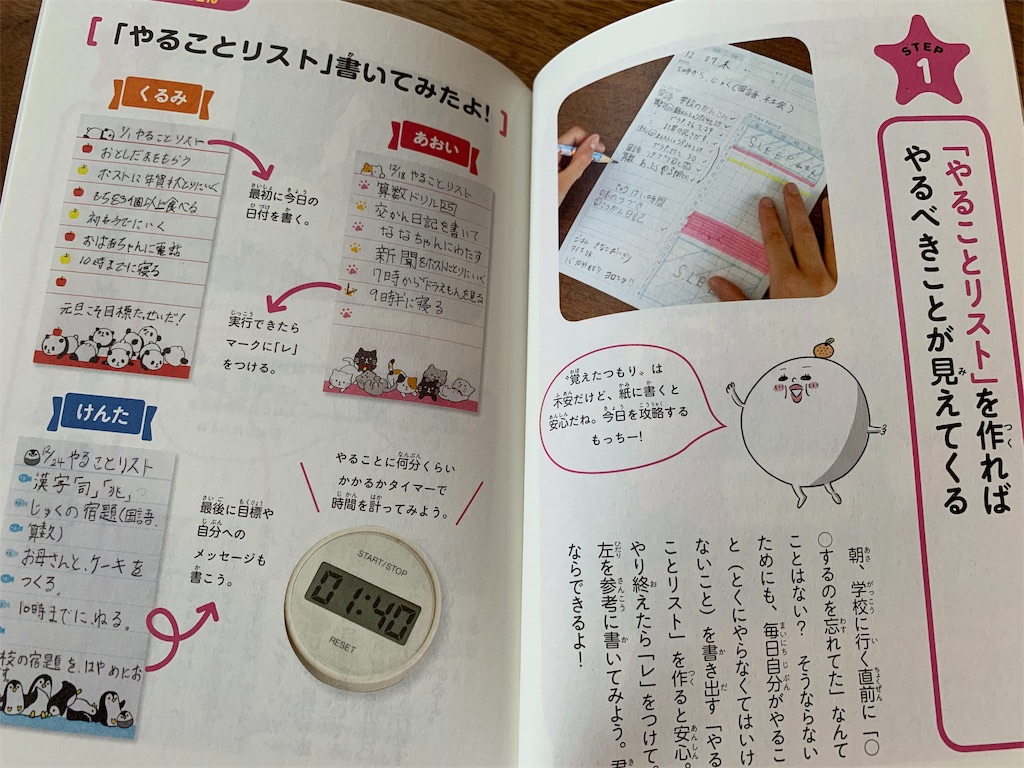 STEP
1
「やることリスト」を作れば
やるべきことが見えてくる
SLEEP
SLEEP
“覚えたつもり”は
不安だけど、紙に書くと
安心だね。今日を攻略する
もっちー!
朝、学校に行く直前に「○
○するのを忘れてた」なんて
ことはない? そうならない
ためにも、毎日自分がやるこ
と(とくにやらなくてはいけ
ないこと)を書き出す「やる
ことリスト」を作ると安心。
やり終えたら「レ」をつけて。
左を参考に書いてみよう。君
ならできるよ!
「やることリスト」書いてみたよ!
くるみ
1/1 やることリスト
おとしだまをもらう
ポストに年賀状とりにいく
もちを3個以上食べる
初もうでにいく
おばあちゃんに電話
10時までに寝る
元旦こそ目標たっせいだ!
最初に今日の
日付を書く。
あおい
12/18 やることリスト
算数ドリル
交かん日記を書いて
ななちゃんにわたす
新聞をポストにとりにいく
7時からドラえもんを見る
9時半に寝る
実行できたら
マークに「レ」
をつける。
けんた
12/24 やることリスト
漢字「司」「兆」
じゅくの宿題(国語、
算数)
お母さんと、ケーキを
つくる。
10時までに、ねる。
校の宿題を、はやめにお
最後に目標や
自分への
メッセージも
書こう。
やることに何分くらい
かかるかタイマーで
時間を計ってみよう。
START/STOP
01:40
RESET